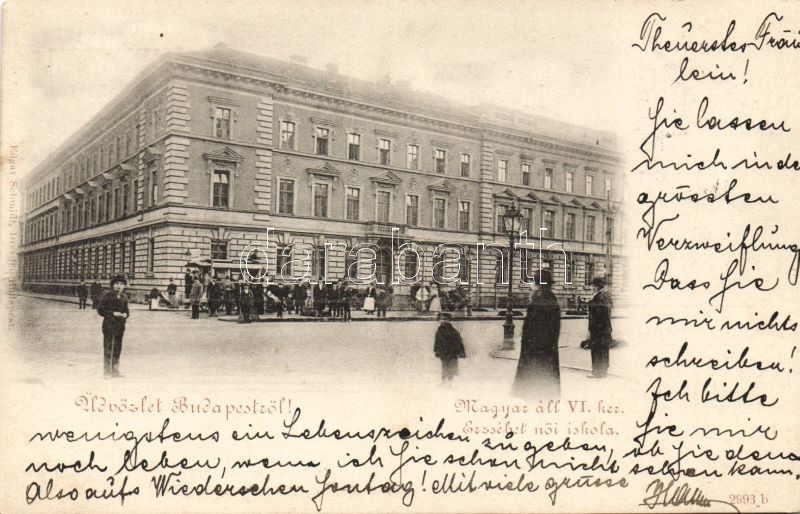 Theuerstes Fräu
lein!
Sie lassen
mich in der
grössten
Verzweiflung
Dass Sie
mir nichts
schreiben!
Ich bitte
Sie mir
wenigstens ein Lebenszeichen zu geben, ob Sie denn
noch leben, wenn ich Sie schon nicht sehen kann.
Also aufs Wiedersehen Sontag! Mit viele grüsse
Üdvözlet Budapestről!
Magyar áll VI. ker.
Erzsébet női iskola.
Edgar Schmidt, Dresden-Budapest.
2993 b
darabanth